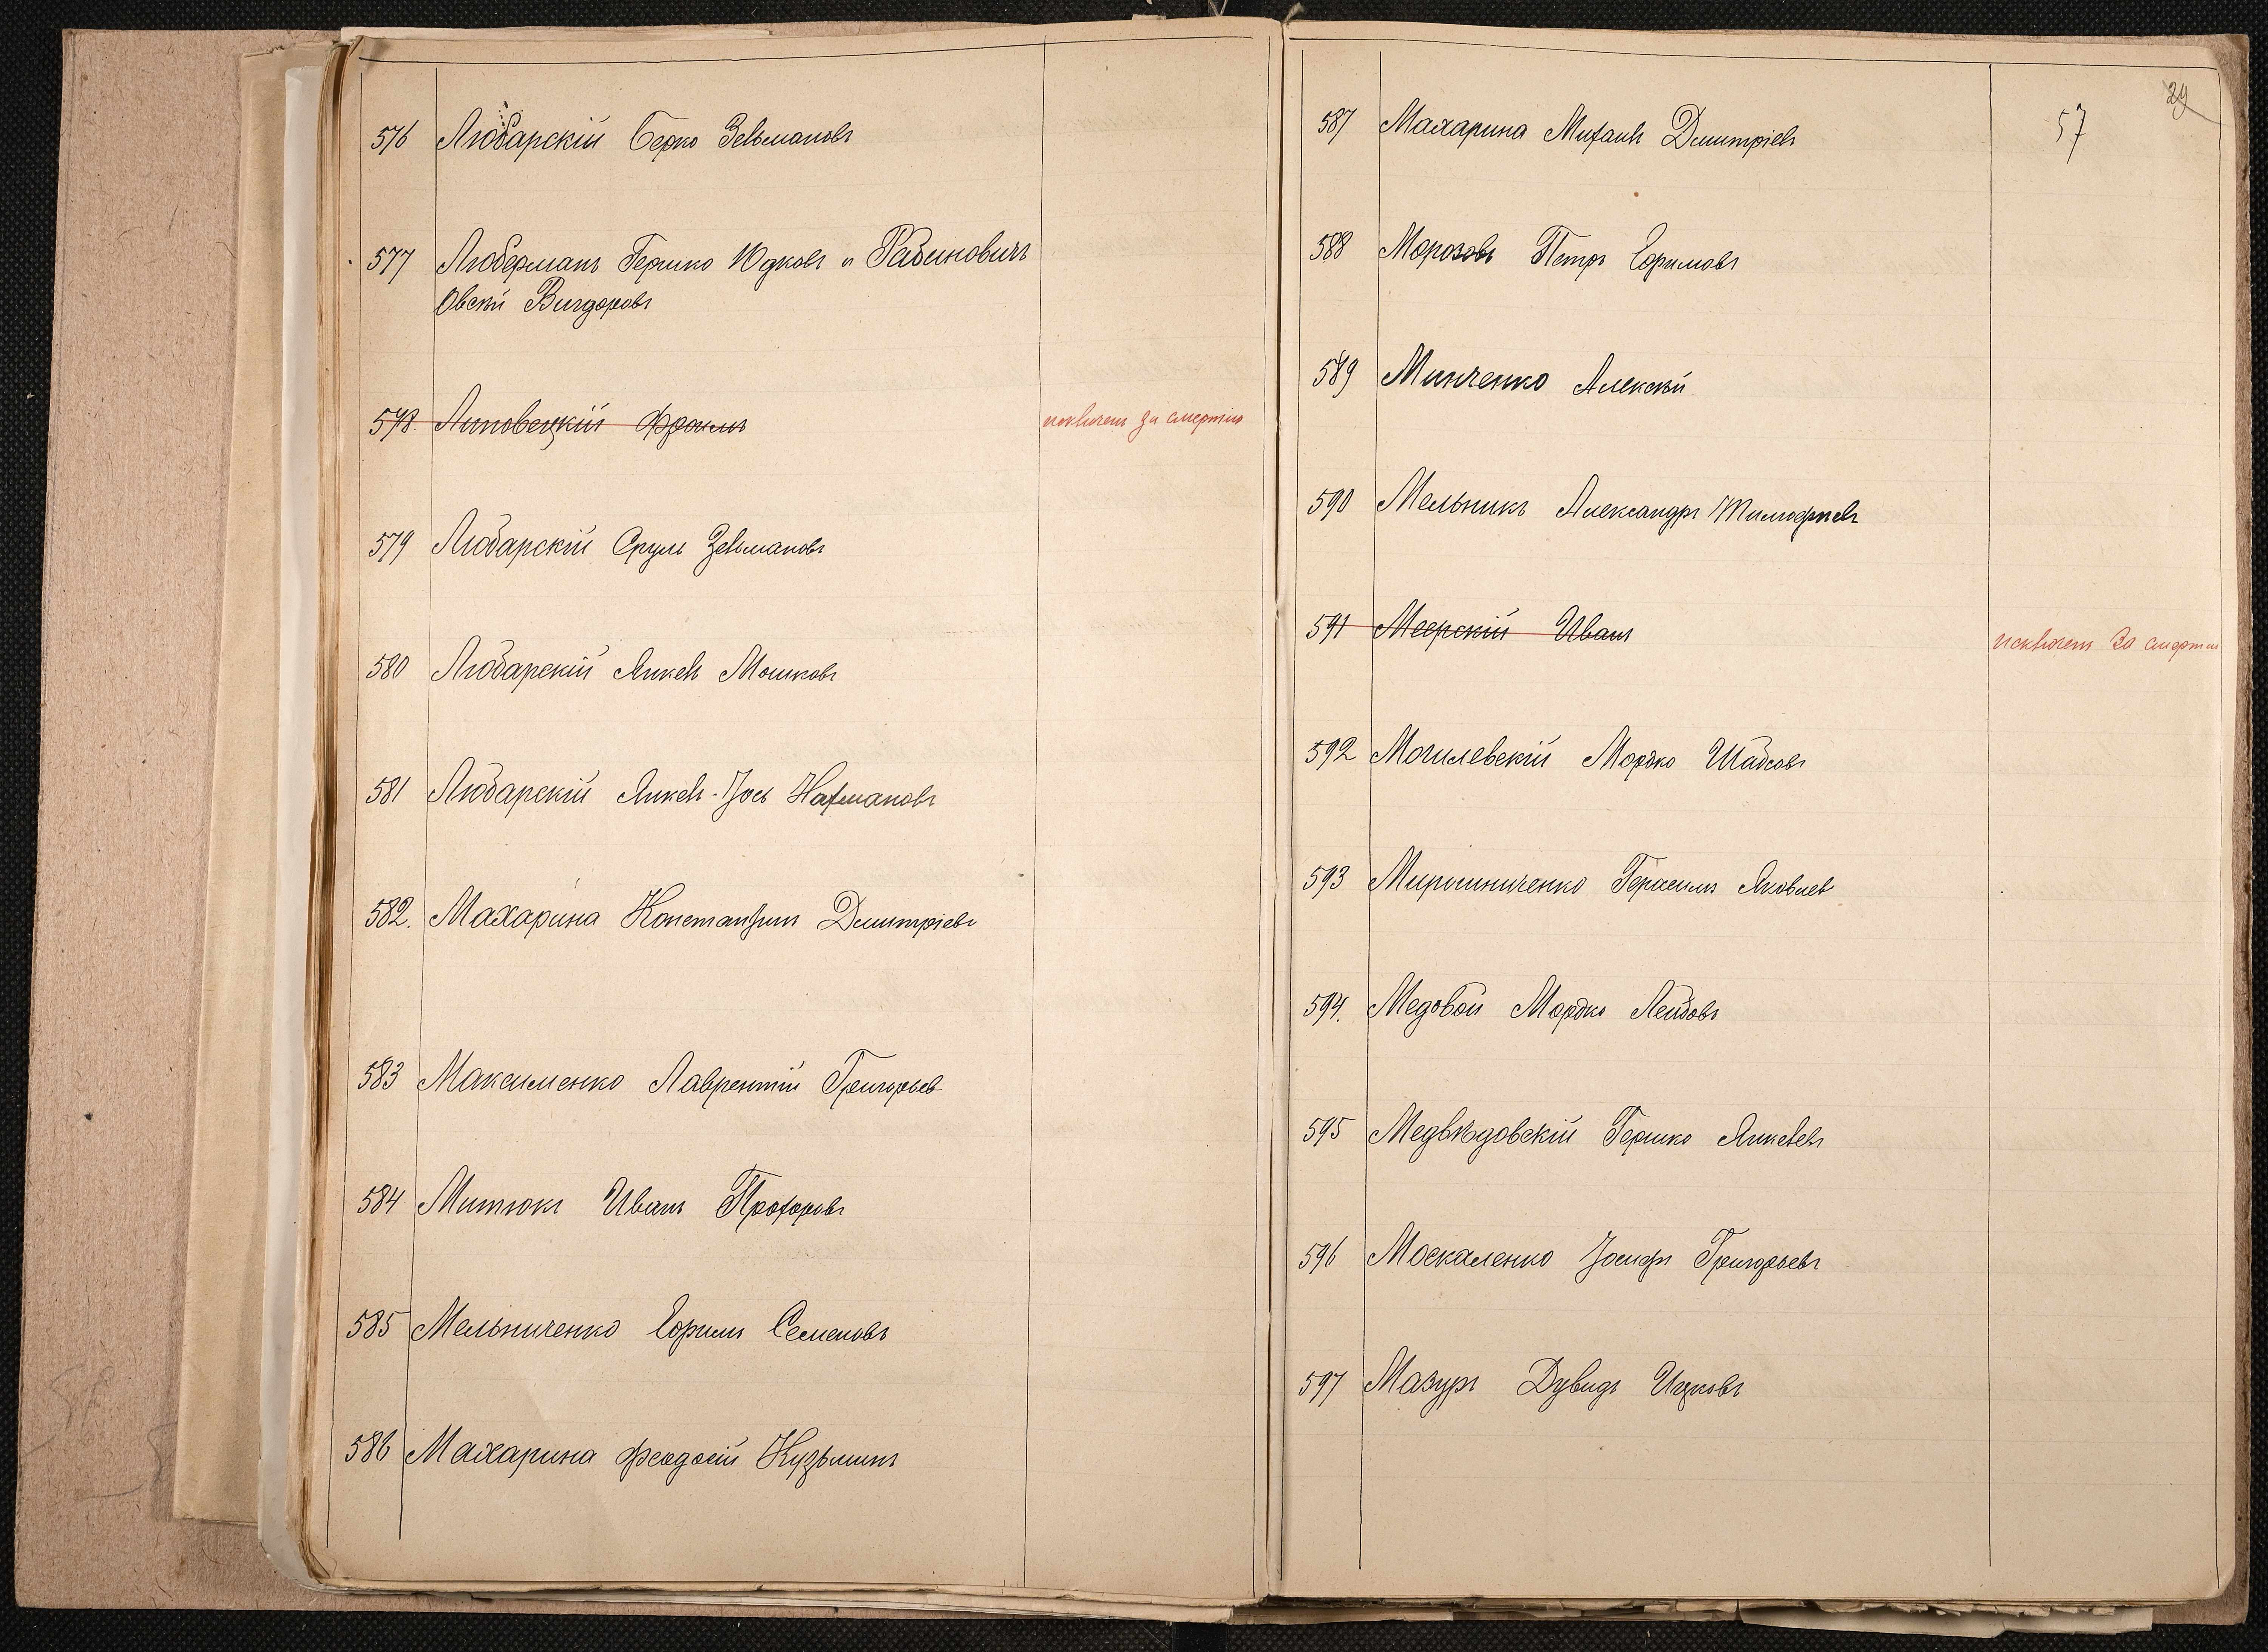 576 Любарскій Берко Зельмановъ
577 Люберманъ Гершко Юдковъ и Рабиновичъ
Овсѣй Вигдоровъ
578. Липовецкій Фроимъ исключенъ за смертію
579 Любарскій Сруль Зельмановъ
580 Любарскій Янкель Мошковъ
581 Любарскій Янкель-Іось Нахмановъ
582. Махарина Константинъ Дмитріевъ
583 Максименко Лаврентій Григорьев
584 Митюкъ Иванъ Прохоровъ
585 Мельниченко Ефимъ Семеновъ
586 Махарина Феодосій Кузьминъ
29
57
587 Махарина Михаилъ Дмитріевъ
588 Морозовъ Петръ Ефимовъ
589 Минченко Алексѣй
590 Мельникъ Александръ Тимофѣевъ
591 Меерскій Иванъ исключенъ за смертію
592 Могилевскій Мордко Шабсовъ
593 Мирошниченко Герасимъ Яковлев
594. Медовой Мордко Лейбовъ
595 Медвѣдовскій Гершко Янкелевъ
596 Москаленко Іосифъ Григорьевъ
597 Мазуръ Дувидъ Ицковъ